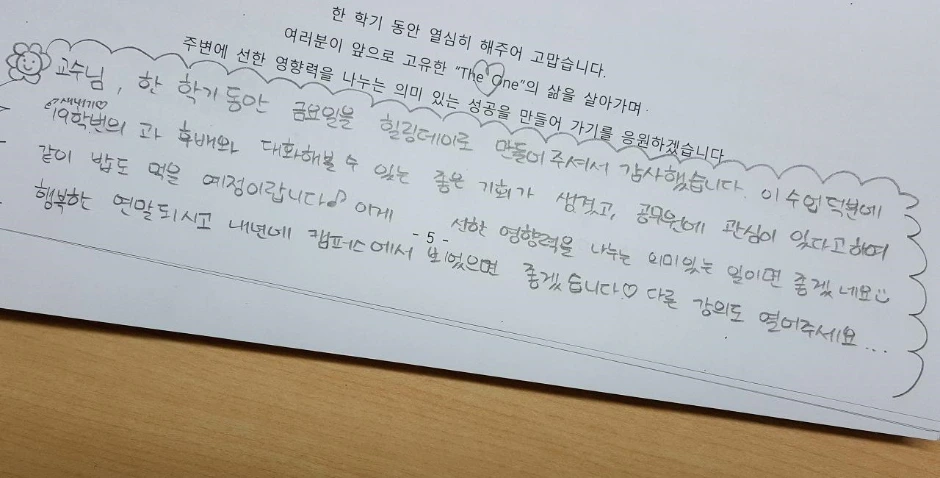 한 학기 동안 열심히 해주어 고맙습니다.
여러분이 앞으로 고유한 "The One"의 삶을 살아가며
주변에 선한 영향력을 나누는 의미 있는 성공을 만들어 가기를 응원하겠습니다
교수님, 한 학기 동안 금요일을 힐링데이로 만들어 주셔서 감사했습니다. 이 수업 덕분에
새내기♡
19학번의 과 후배와 대화해볼 수 있는 좋은 기회가 생겼고, 공무원에 관심이 있다고하여
같이 밥도 먹을 예정이랍니다♪ 이게 선한 영향력을 나누는 의미있는 일이면 좋겠네요☺
- 5 -
행복한 연말되시고 내년에 캠퍼스에서 뵈었으면 좋겠습니다♡ 다른 강의도 열어주세요...